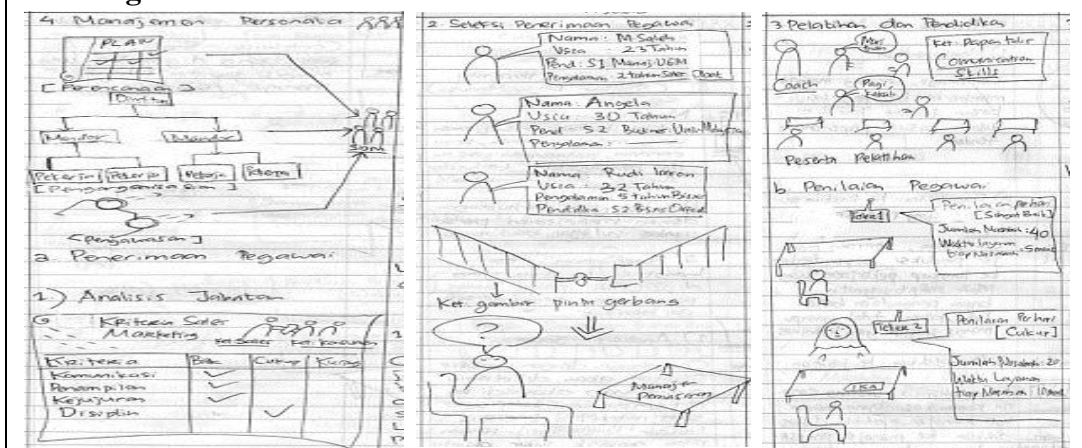 4. Manajemen Personalia
PLAN
[Perencanaan]
Direktur
Mandor Mandor
Pekerja Pekerja Pekerja Pekerja
[Pengorganisasian]
SDM
[Pengawasan]
a. Penerimaan Pegawai
1.) Analisis Jabatan
Kriteria Sales
Marketing
Kriteria Baik Cukup Kurang
Komunikasi
Penampilan
Kejujuran
Disiplin
2. Seleksi Penerimaan Pegawai
Nama : M Saleh
Usia : 23 Tahun
Pend : S1 Manaj. UGM
Pengalaman : 2 tahun Sales
Nama : Angela
Usia : 30 Tahun
Pend : S2
Pengalaman :
Nama : Rudi
Usia : 32 Tahun
Pengalaman 5 tahun Bisnis
S2
Ket. gambar pintu gerbang
?
Manajer
Pemasaran
3 Pelatihan dan Pendidikan
Coach
Pagi
Ket. Papan tulis
Comunication
Skills
Peserta Pelatihan
b. Penilaian Pegawai
Teler 1
Penilaian perhari
[Sangat Baik]
Jumlah Nasabah : 40
Waktu layanan
tiap Nasabah : 5 menit
Teler 2
Penilaian Perhari
[Cukup]
Jumlah Nasabah : 20
Waktu Layanan
tiap Nasabah : 10 menit